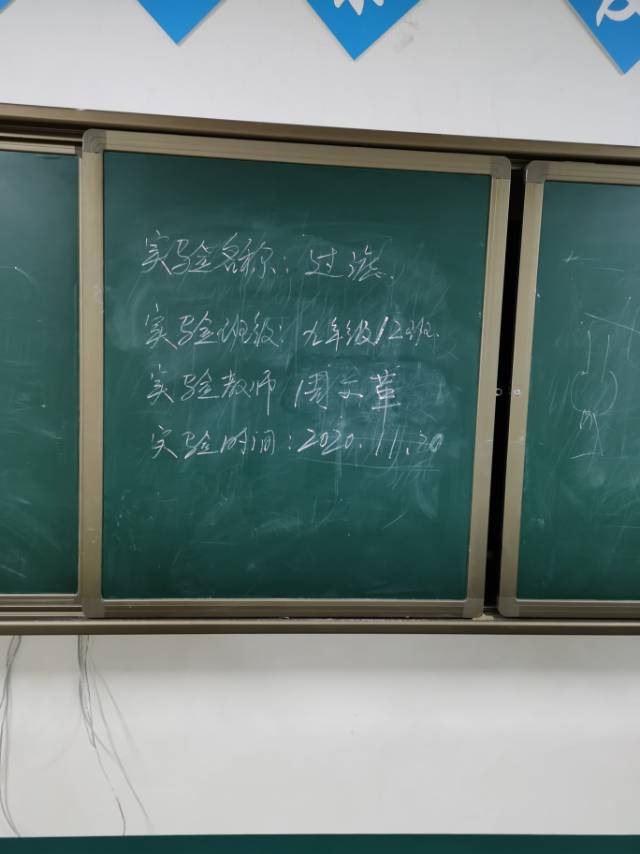 实验名称：过滤.
实验班级：九年级12班.
实验教师 周文革
实验时间：2020.11.30